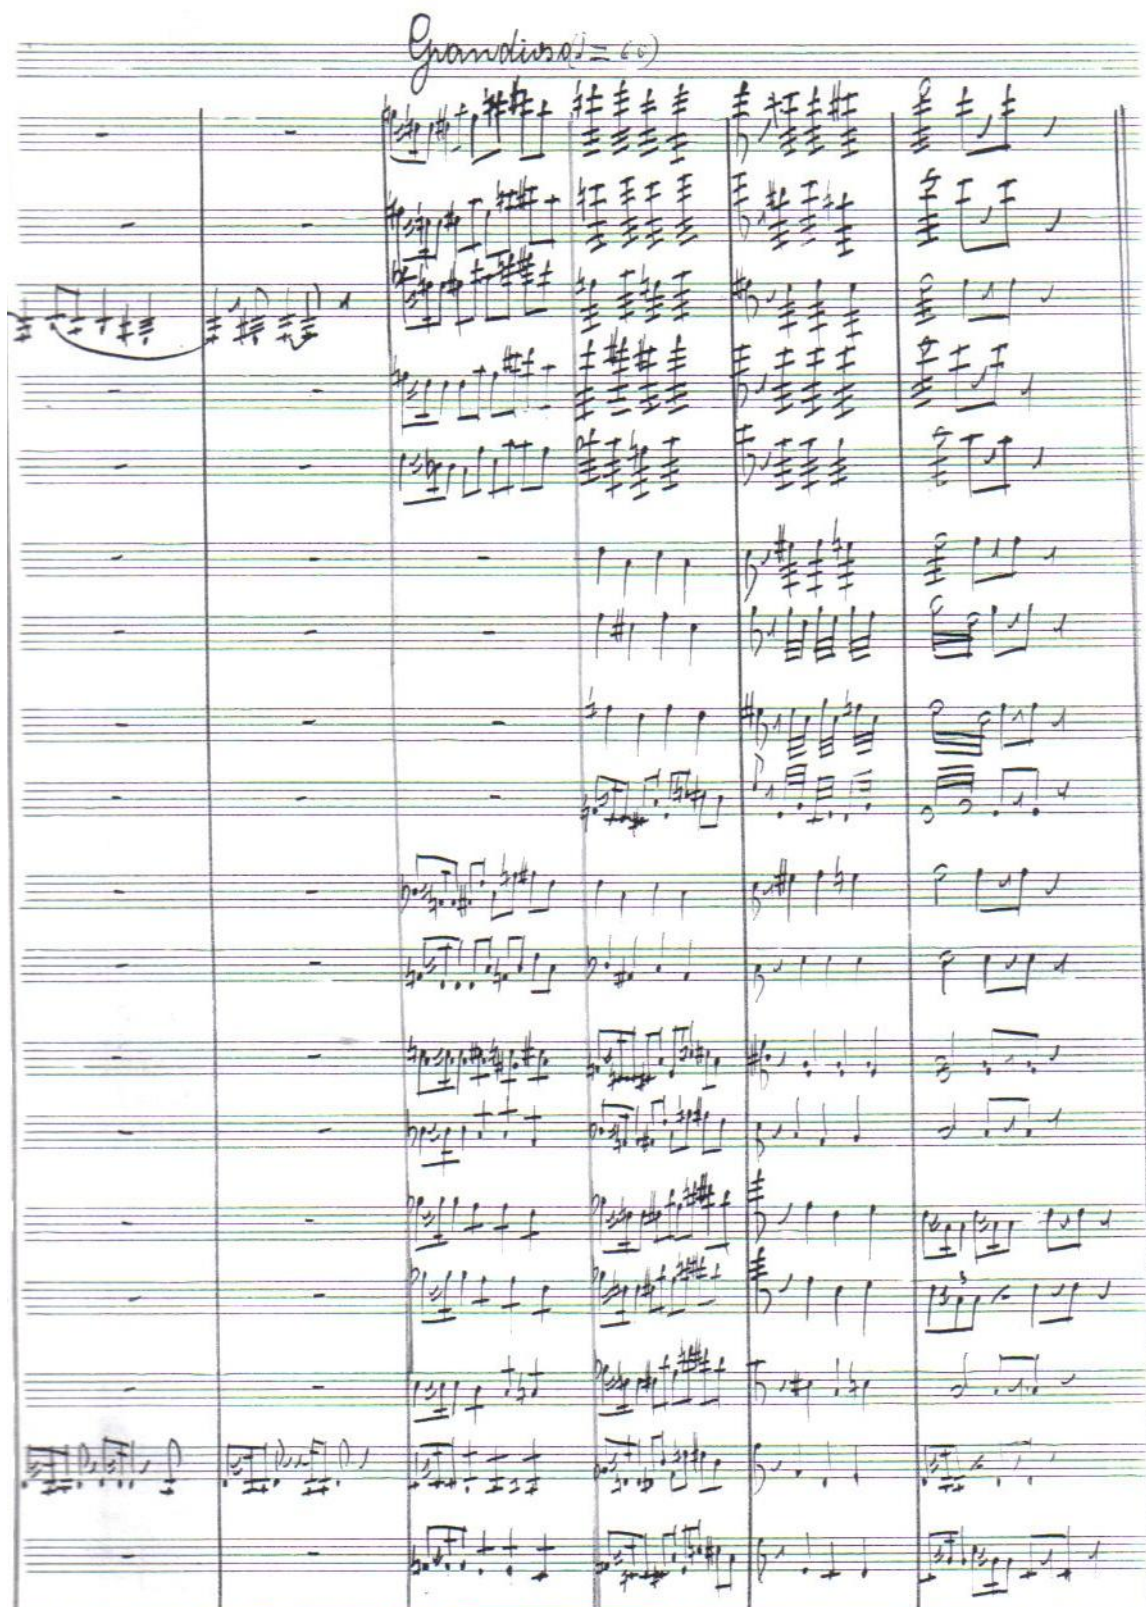 Grandioso (♩= 60)
3